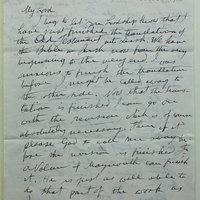 My Lord
I beg to let your Lordship know that I
have just finished the translation of
the Old Testament into Irish. I have
the Bible in Irish now from the very
beginning to the very end. I was
anxious to finish the translation
before I might be called away to
the other side. Now that the trans
lation is finished I can go on
with the revision which is of course
absolutely necessary. Then if it
please God to call me away
before the revision is finished,
of Maynooth can finish
it. He is just as well able to
do that part of the work as